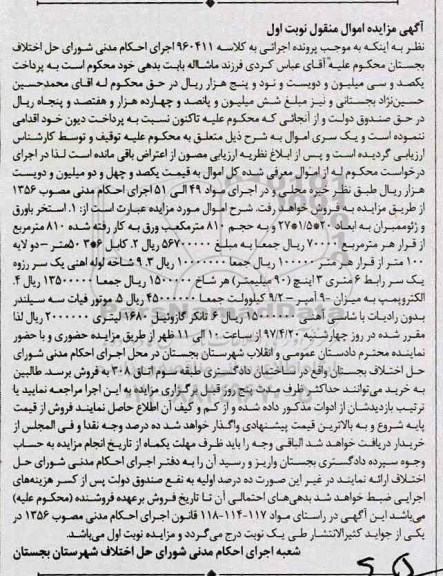 آگهی مزایده اموال منقول نوبت اول
نظر به اینکه به موجب پرونده اجرائی به کلاسه ۹۶۰۴۱۱ اجرای احکام مدنی شورای حل اختلاف
بجستان محکوم علیه آقای عباس کردی فرزند ماشااله بابت بدهی خود محکوم است به پرداخت
یکصد و سی میلیون و دویست و نود و پنج هزار ریال در حق محکوم له اقای محمدحسین
حسین‌نژاد بجستانی و نیز مبلغ شش میلیون و پانصد و چهارده هزار و هفتصد و پنجاه ریال
در حق صندوق دولت و از آنجائی که محکوم علیه تاکنون نسبت به پرداخت دیون خود اقدامی
ننموده است و یک سری اموال به شرح ذیل متعلق به محکوم علیه توقیف و توسط کارشناس
ارزیابی گردیده است و پس از ابلاغ نظریه ارزیابی مصون از اعتراض باقی مانده است لذا در اجرای
درخواست محکوم له از اموال معرفی شده کل اموال به قیمت یکصد و چهل و دو میلیون و دویست
هزار ریال طبق نظر خبره محلی و در اجرای مواد ۴۹ الی ۵۱ اجرای احکام مدنی مصوب ۱۳۵۶
از طریق مزایده به فروش خواهد رفت. شرح اموال مورد مزایده عبارت است از: ۱. استخر باورق
و ژئوممبران به ابعاد ۲۰*۱/۵*۲۷ و به حجم ۸۱۰ مترمکعب ورق به کار رفته شده ۸۱۰ مترمربع
از قرار هر مترمربع ۷۰۰۰۰ ریال جمعا به مبلغ ۵۶۷۰۰۰۰۰ ریال ۲. کابل ۶*۳ ۵۰متر - دو لایه
۱۰۰ متر از قرار هر متر ۱۰۰۰۰۰ ریال جمعا ۱۰۰۰۰۰۰۰ ریال ۳. ۹ شاخه لوله اهنی یک سر رزوه
یک سر رابط ۶ متری ۳ اینچ (۹۰ میلیمتر) هر شاخ ۱۵۰۰۰۰۰ ریال جمعا ۱۳۵۰۰۰۰۰ ریال ۴.
الکتروپمپ به میزان ۹۰ آمپر - ۹/۲ کیلوولت جمعا ۴۵۰۰۰۰۰۰ ریال ۵. موتور فیات سه سیلندر
بدون رادیات با شاسی آهنی ۱۵۰۰۰۰۰۰ ریال ۶. تانکر گازوئیل ۱۶۸۰ لیتری ۲۰۰۰۰۰۰ ریال لذا
مقرر شده در روز چهارشنبه ۹۷/۴/۲۰ از ساعت ۱۰ الی ۱۱ ظهر از طریق مزایده حضوری و با حضور
نماینده محترم دادستان عمومی و انقلاب شهرستان بجستان در محل اجرای احکام مدنی شورای
حل اختلاف بجستان واقع در ساختمان دادگستری طبقه سوم اتاق ۳۰۸ به فروش برسد. طالبین
به خرید می‌توانند حداکثر ظرف مدت پنج روز قبل برگزاری مزایده به این اجرا مراجعه نمایند یا
ترتیب بازدیدشان از ادوات مذکور داده شده و از کم و کیف آن اطلاع حاصل نمایند فروش از قیمت
پایه شروع و به بالاترین قیمت پیشنهادی واگذار خواهد شد ده درصد وجه نقدا و فی المجلس از
خریدار دریافت خواهد شد الباقی وجه را باید ظرف مهلت یکماه از تاریخ انجام مزایده به حساب
وجوه سپرده دادگستری بجستان واریز و رسید آن را به دفتر اجرای احکام مدنی شورای حل
اختلاف ارائه نمایند در غیر این صورت ده درصد اولیه به نفع صندوق دولت پس از کسر هزینه‌های
اجرایی ضبط خواهد شد بدهی‌های احتمالی آن تا تاریخ فروش برعهده فروشنده (محکوم علیه)
می‌باشد این آگهی در راستای مواد ۱۱۷-۱۱۴-۱۱۸ قانون اجرای احکام مدنی مصوب ۱۳۵۶ در
یکی از جراید کثیرالانتشار طی یک نوبت درج می‌گردد و مزایده نوبت اول می‌باشد.
شعبه اجرای احکام مدنی شورای حل اختلاف شهرستان بجستان